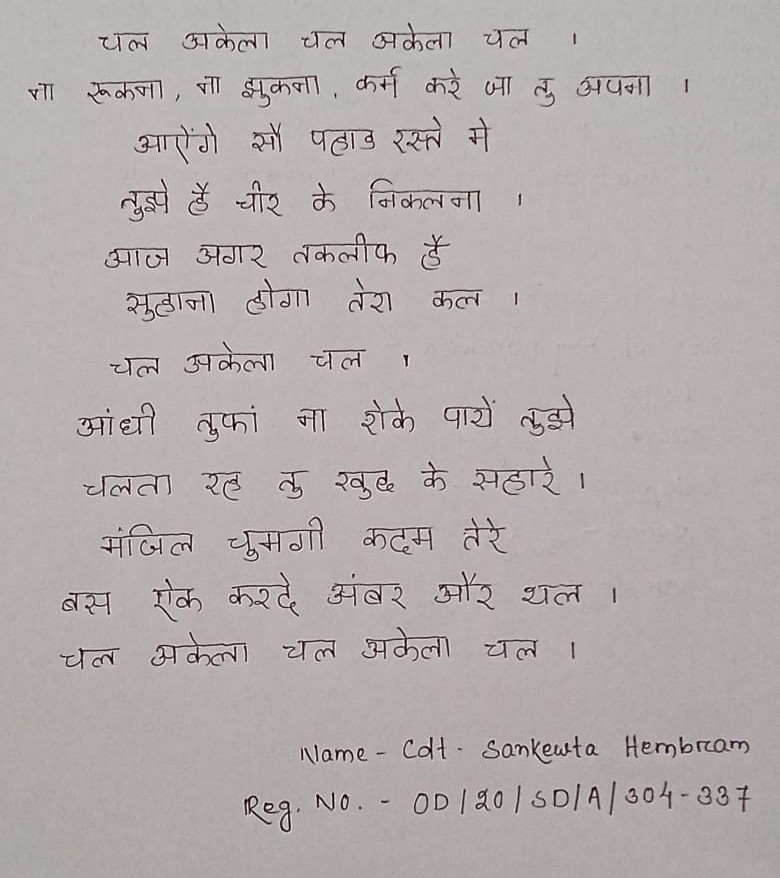 चल अकेला चल अकेला चल ।
ना रूकना, ना झुकना, कर्म करे जा तु अपना ।
आऐंगे सौ पहाड रस्ते मे
तुझे है चीर के निकलना ।
आज अगर तकलीफ है
सुहाना होगा तेरा कल ।
चल अकेला चल ।
आंधी तुफां ना रोके पायें तुझे
चलता रह तु खुद के सहारे ।
मंजिल चुमगी कदम तेरे
बस ऐक करदे अंबर और थल ।
चल अकेला चल अकेला चल ।
Name - Cdt. Sankewta Hembram
Reg. No. - OD/20/SD/A/304-337